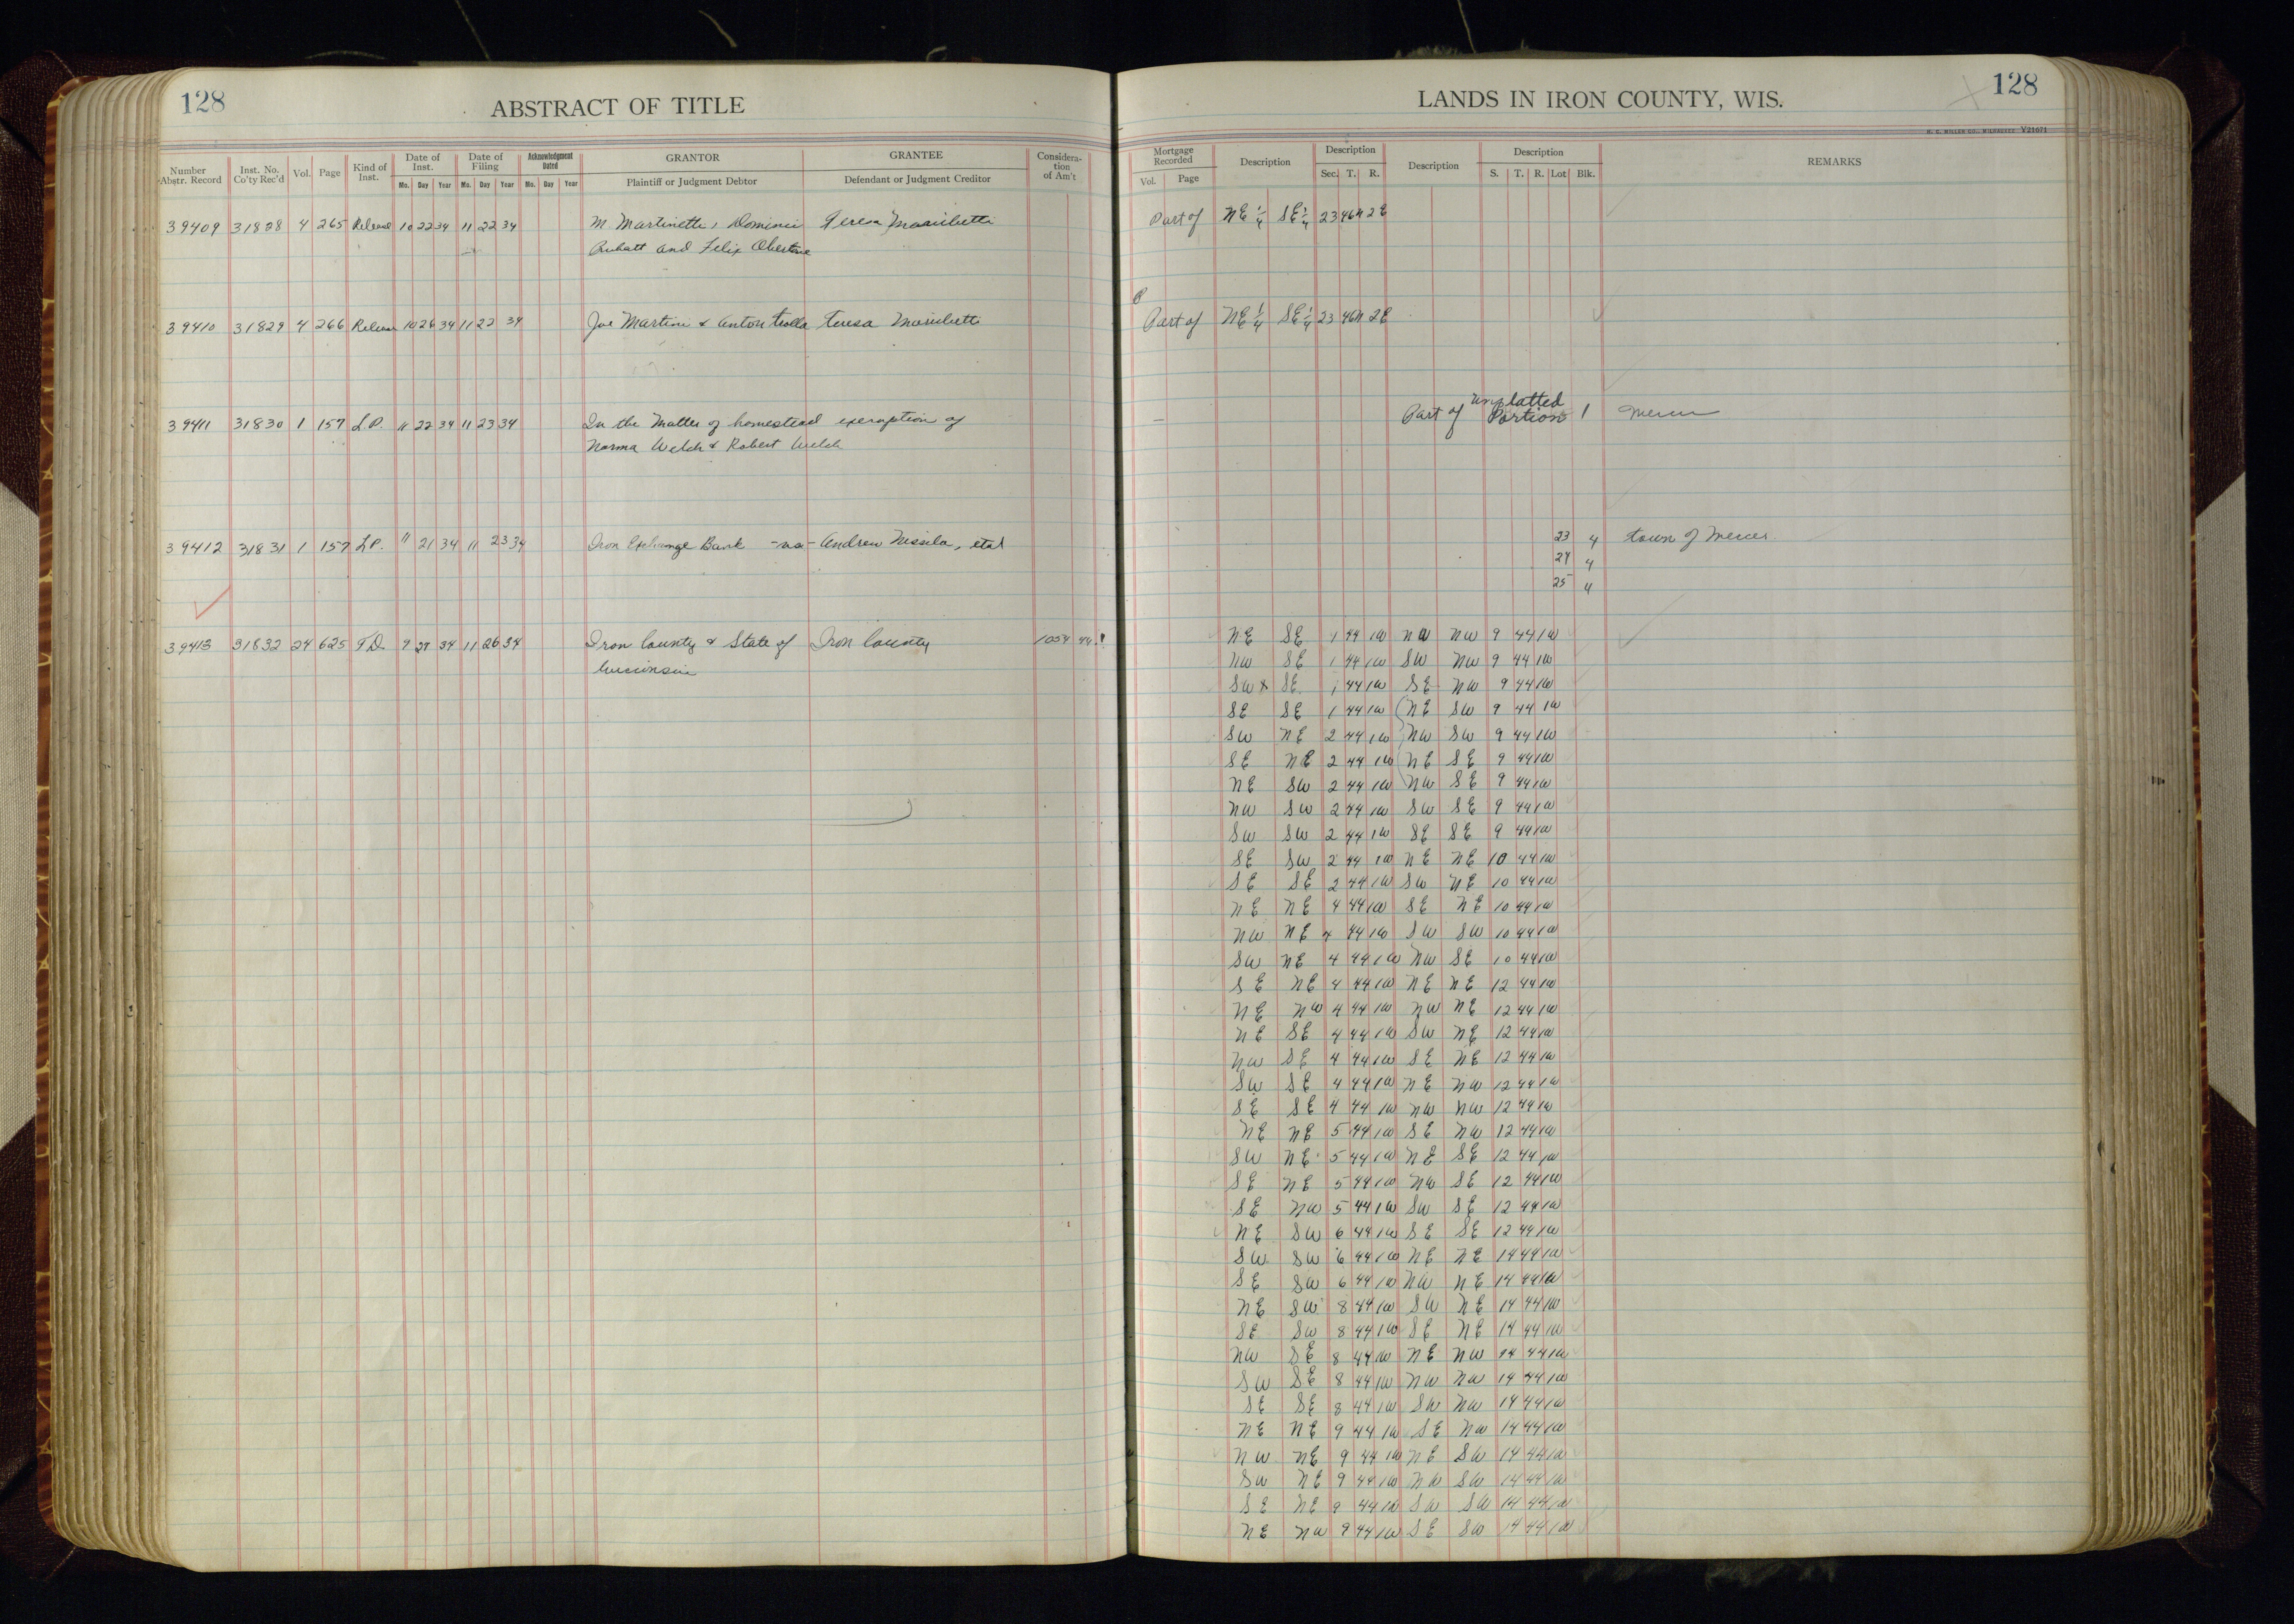 128
ABSTRACT OF TITLE
Number Abstr. Record Inst. No. Co'ty Rec'd Vol. Page Kind of Inst. Date of Inst. Mo. Day Year Date of Filing Mo. Day Year Acknowledgment Dated Mo. Day Year GRANTOR Plaintiff or Judgment Debtor GRANTEE Defendant or Judgment Creditor Considera-tion of Am't
39409 31828 4 265 Release 10 22 34 11 22 34 M. Martinetti, Dominic Teresa
and Felix
39410 31829 4 266 Release 10 26 34 11 22 34 Joe Martini & Anton Trolla Teresa
39411 31830 1 157 L.P. 11 22 34 11 23 34 In the Matter of homestead exemption of
Norma Welch & Robert Welch
39412 31831 1 157 L.P. 11 21 34 11 23 34 Iron Exchange Bank -vs- Andrew Nissila, etal
39413 31832 24 625 T.D. 9 27 34 11 26 34 Iron County & State of Iron County 1054 44
Wisconsin
LANDS IN IRON COUNTY, WIS.
128
H. C. MILLER CO., MILWAUKEE V21071
Mortgage Recorded Vol. Page Description Description Sec. T. R. Description Description S. T. R. Lot Blk. REMARKS
Part of NE 1/4 SE 1/4 23 46N 2E
Part of NE 1/4 SE 1/4 23 46N 2E
Part of unplatted Portion 1 Mercer
23 4 town of Mercer
24 4
25 4
NE SE 1 44 1W NW NW 9 44 1W
NW SE 1 44 1W SW NW 9 44 1W
SW SE 1 44 1W SE NW 9 44 1W
SE SE 1 44 1W NE SW 9 44 1W
SW NE 2 44 1W NW SW 9 44 1W
SE NE 2 44 1W NE SE 9 44 1W
NE SW 2 44 1W NW SE 9 44 1W
NW SW 2 44 1W SW SE 9 44 1W
SW SW 2 44 1W SE SE 9 44 1W
SE SW 2 44 1W NE NE 10 44 1W
SE SE 2 44 1W SW NE 10 44 1W
NE NE 4 44 1W SE NE 10 44 1W
NW NE 4 44 1W SW SW 10 44 1W
SW NE 4 44 1W NW SE 10 44 1W
SE NE 4 44 1W NE NE 12 44 1W
NE NW 4 44 1W NW NE 12 44 1W
NE SE 4 44 1W SW NE 12 44 1W
NW SE 4 44 1W SE NE 12 44 1W
SW SE 4 44 1W NE NW 12 44 1W
SE SE 4 44 1W NW NW 12 44 1W
NE NE 5 44 1W SE NW 12 44 1W
SW NE 5 44 1W NE SE 12 44 1W
SE NE 5 44 1W NW SE 12 44 1W
SE NW 5 44 1W SW SE 12 44 1W
NE SW 6 44 1W SE SE 12 44 1W
SW SW 6 44 1W NE NE 14 44 1W
SE SW 6 44 1W NW NE 14 44 1W
NE SW 8 44 1W SW NE 14 44 1W
SE SW 8 44 1W SE NE 14 44 1W
NW SE 8 44 1W NE NW 14 44 1W
SW SE 8 44 1W NW NW 14 44 1W
SE SE 8 44 1W SW NW 14 44 1W
NE NE 9 44 1W SE NW 14 44 1W
NW NE 9 44 1W NE SW 14 44 1W
SW NE 9 44 1W NW SW 14 44 1W
SE NE 9 44 1W SW SW 14 44 1W
NE NW 9 44 1W SE SW 14 44 1W